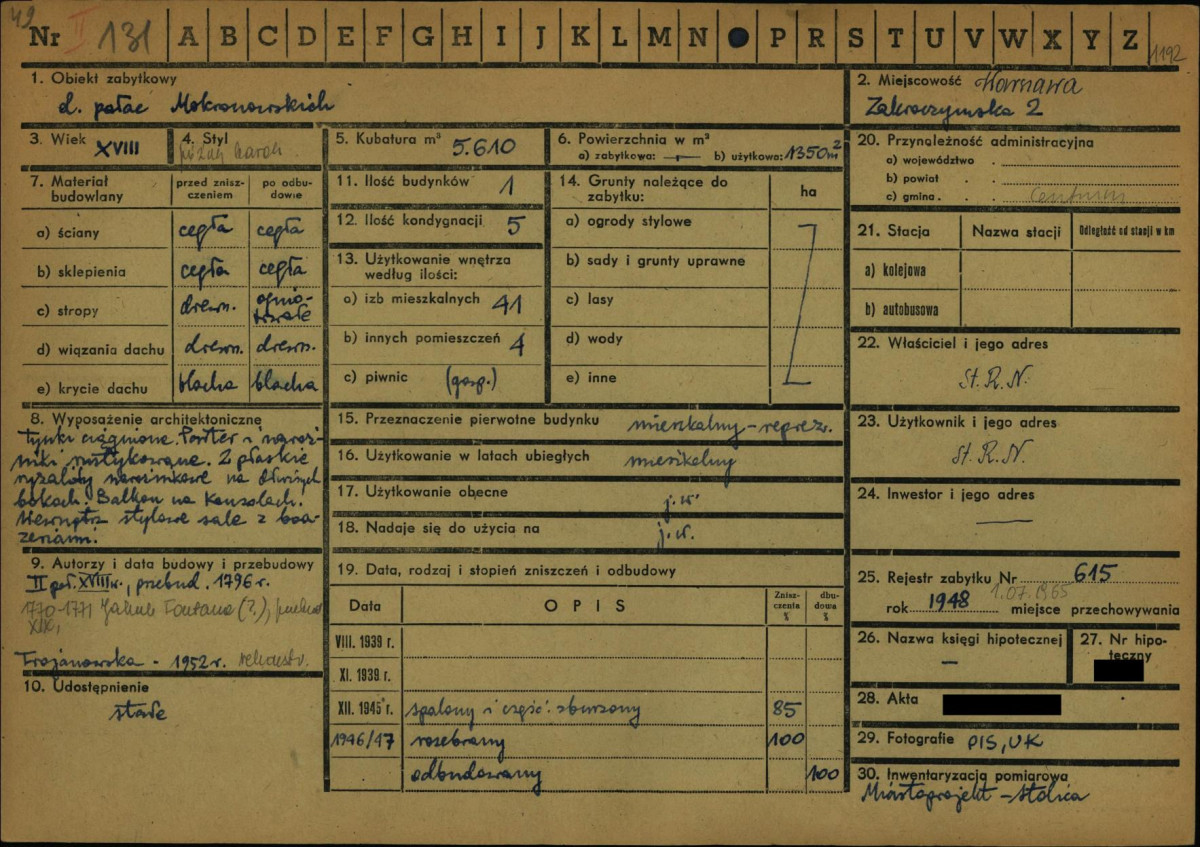 49
Nr II 131 A B C D E F G H I J K L M N P R S T U V W X Y Z 1192
1. Obiekt zabytkowy
d. pałac Mokronowskich
2. Miejscowość Warszawa
Zakroczymska 2
3. Wiek XVIII
4. Styl
późny barok
5. Kubatura m³ 5.610
6. Powierzchnia w m²
a) zabytkowa: — b) użytkowa: 1350 m²
7. Materiał budowlany
przed zniszczeniem
po odbudowie
a) ściany cegła cegła
b) sklepienia cegła cegła
c) stropy drewn. ogniotrwałe
d) wiązania dachu drewn. drewn.
e) krycie dachu blacha blacha
8. Wyposażenie architektoniczne
tynki ciągnione. Parter i naroż-
niki rustykowane. 2 płaskie
ryzality narożnikowe na dłuższych
bokach. Balkon na konsolach.
Wewnątrz stylowe sale z boa-
zeriami.
9. Autorzy i data budowy i przebudowy
II poł. XVIII w., przebud. 1796 r.
1770-1771 Jakub Fontana (?), przebud
XIX,
Trojanowska - 1952 r. rekonstr.
10. Udostępnienie
stałe
11. Ilość budynków 1
12. Ilość kondygnacji 5
13. Użytkowanie wnętrza
według ilości:
a) izb mieszkalnych 41
b) innych pomieszczeń 4
c) piwnic (gosp.)
14. Grunty należące do
zabytku: ha
a) ogrody stylowe
b) sady i grunty uprawne
c) lasy
d) wody
e) inne
15. Przeznaczenie pierwotne budynku mieszkalny-reprez.
16. Użytkowanie w latach ubiegłych mieszkalny
17. Użytkowanie obecne j.w.
18. Nadaje się do użycia na j.w.
19. Data, rodzaj i stopień zniszczeń i odbudowy
Data OPIS Zniszczenia % dbudowa %
VIII. 1939 r.
XI. 1939 r.
XII. 1945 r. spalony i częśc. zburzony 85
1946/47 rozebrany 100
odbudowany 100
20. Przynależność administracyjna
a) województwo
b) powiat
c) gmina Centrum
21. Stacja Nazwa stacji Odległość od stacji w km
a) kolejowa
b) autobusowa
22. Właściciel i jego adres
St. R. N.
23. Użytkownik i jego adres
St. R. N.
24. Inwestor i jego adres
—
25. Rejestr zabytku Nr 615
1.07.1965
rok 1948 miejsce przechowywania
26. Nazwa księgi hipotecznej
—
27. Nr hipo-
teczny
28. Akta
29. Fotografie PIS, UK
30. Inwentaryzacja pomiarowa
Miastoprojekt - Stolica